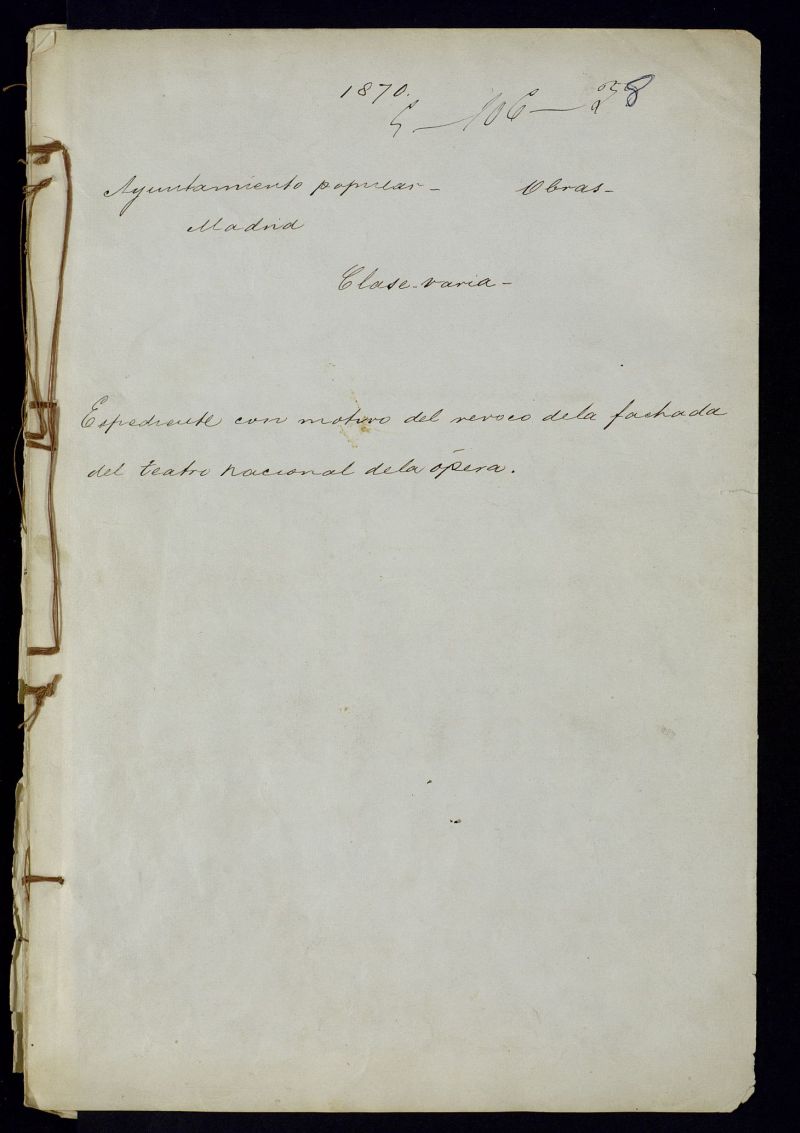 1870.
5-106-28
Ayuntamiento popular- Obras-
Madrid
Clase-varia-
Espediente con motivo del revoco dela fachada
del teatro nacional dela ópera.